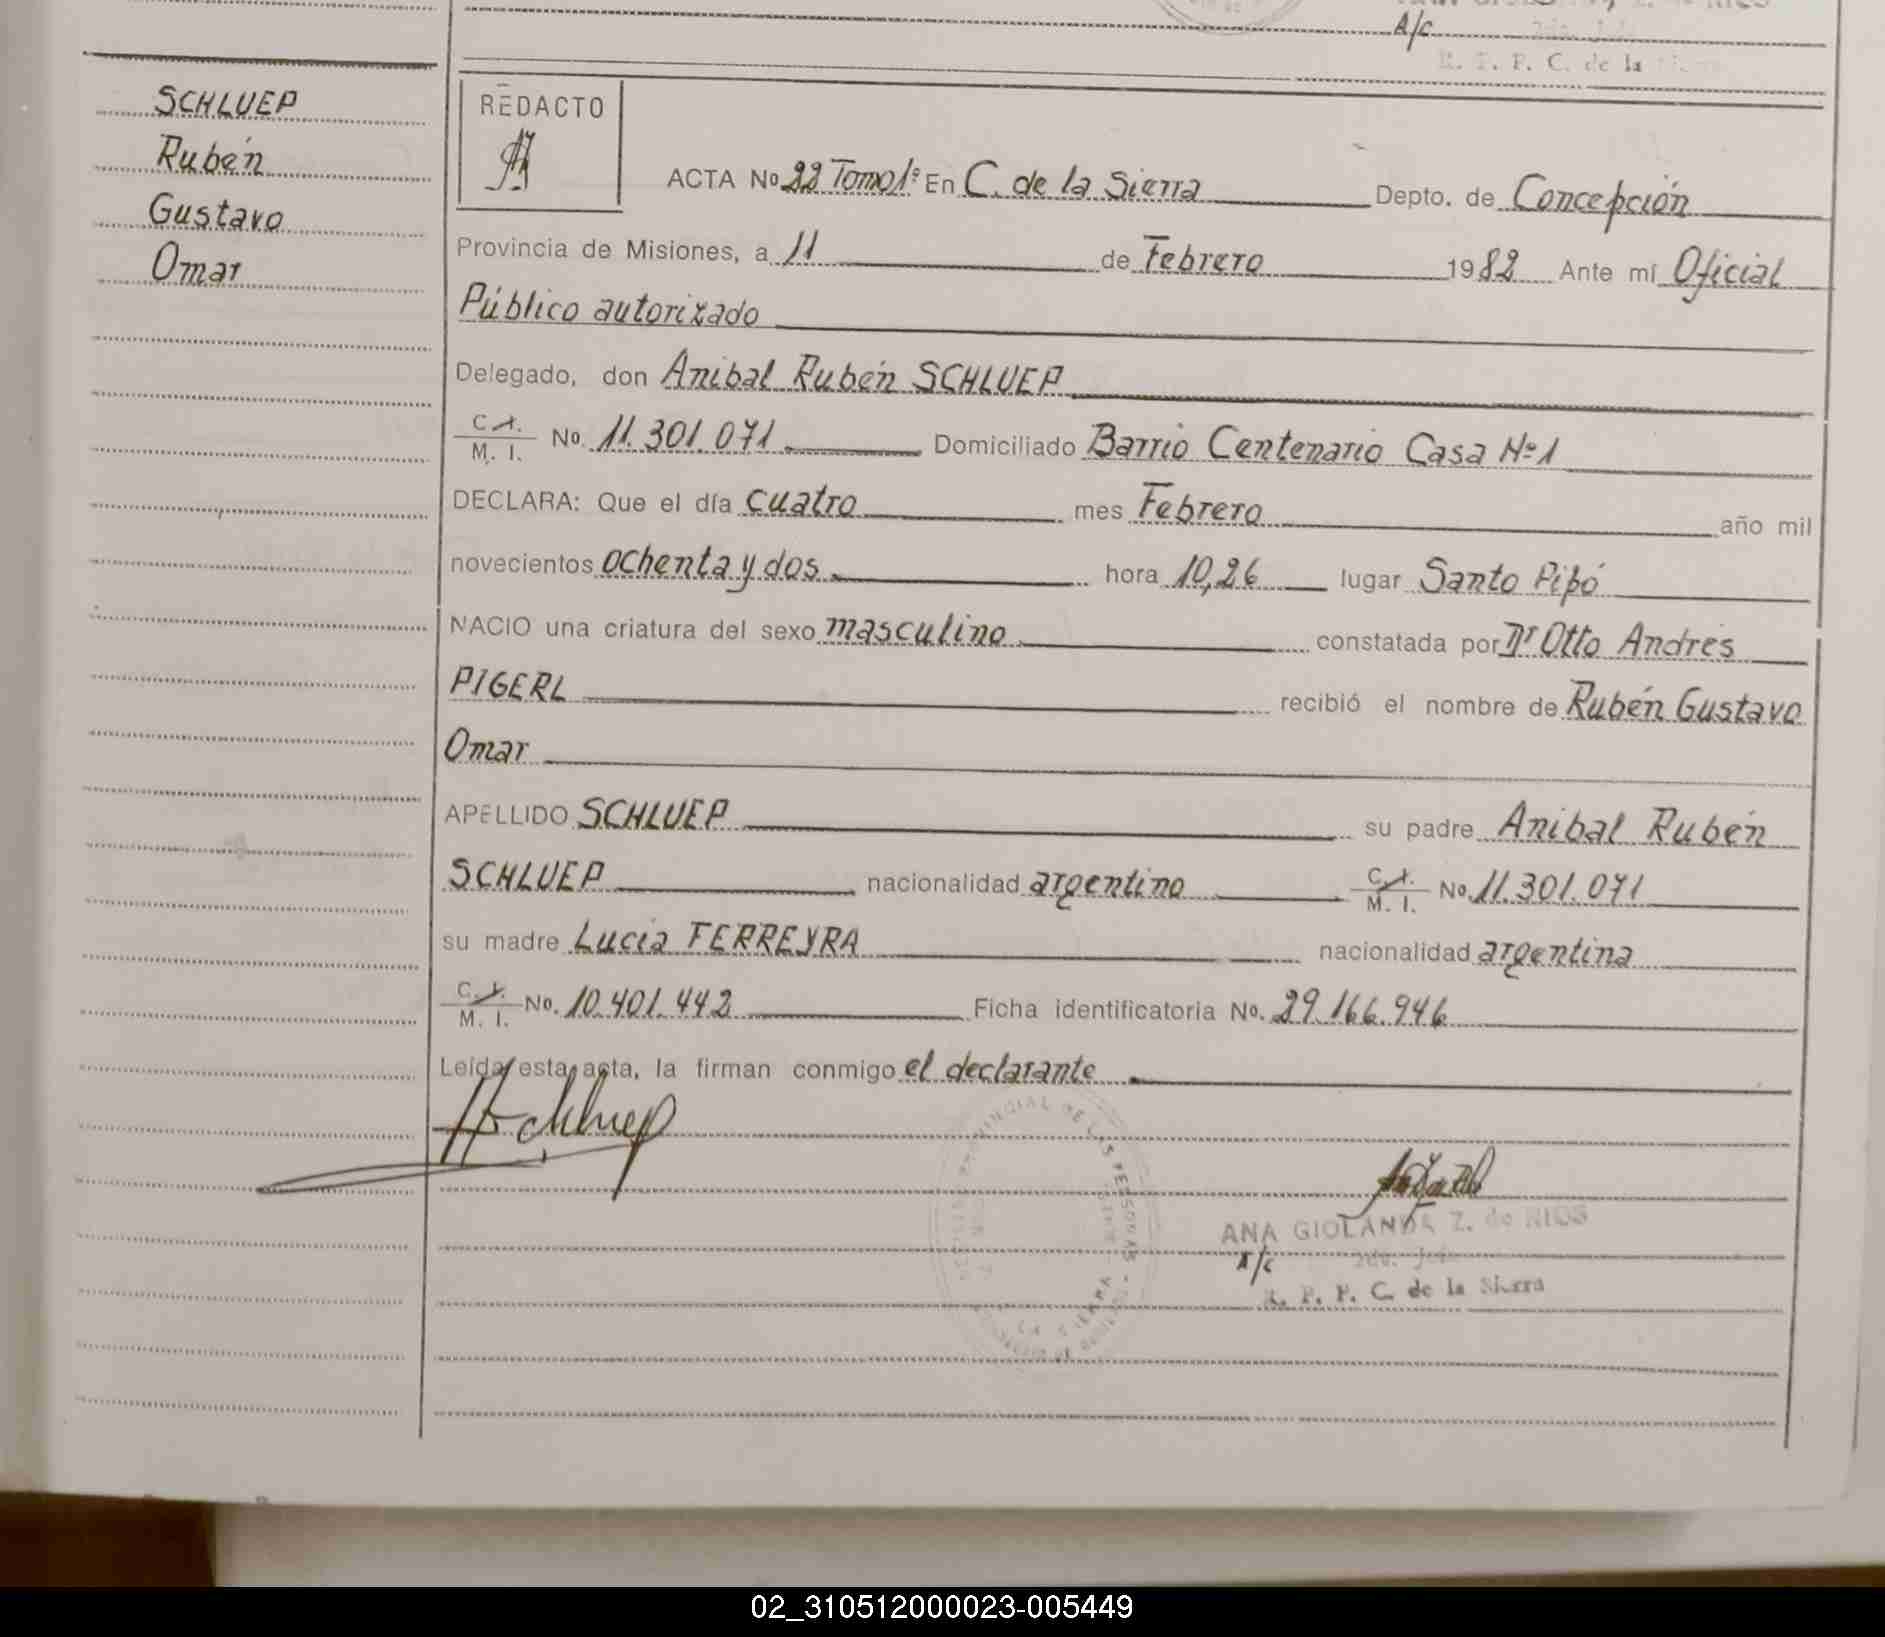 A/c
R. P. P. C. de la
SCHLUEP
Rubén
Gustavo
Omar
REDACTO
ACTA No 22 Tomo 1º En C. de la Sierra Depto. de Concepción
Provincia de Misiones, a 11 de Febrero 1982 Ante mí Oficial
Público autorizado
Delegado, don Anibal Rubén SCHLUEP
C. I. / M. I. No. 11.301.071 Domiciliado Barrio Centenario Casa Nº 1
DECLARA: Que el día cuatro mes Febrero año mil
novecientos ochenta y dos hora 10,26 lugar Santo Pipó
NACIO una criatura del sexo masculino constatada por Dr Otto Andrés
PIGERL recibió el nombre de Rubén Gustavo
Omar
APELLIDO SCHLUEP su padre Anibal Rubén
SCHLUEP nacionalidad argentino C. I. / M. I. No. 11.301.071
su madre Lucia FERREYRA nacionalidad argentina
C. I. / M. I. No. 10.401.442 Ficha identificatoria No. 29.166.946
Leída esta acta, la firman conmigo el declarante
ANA GIOLANDA Z. de RIOS
A/c
R. P. P. C. de la Sierra
02_310512000023-005449